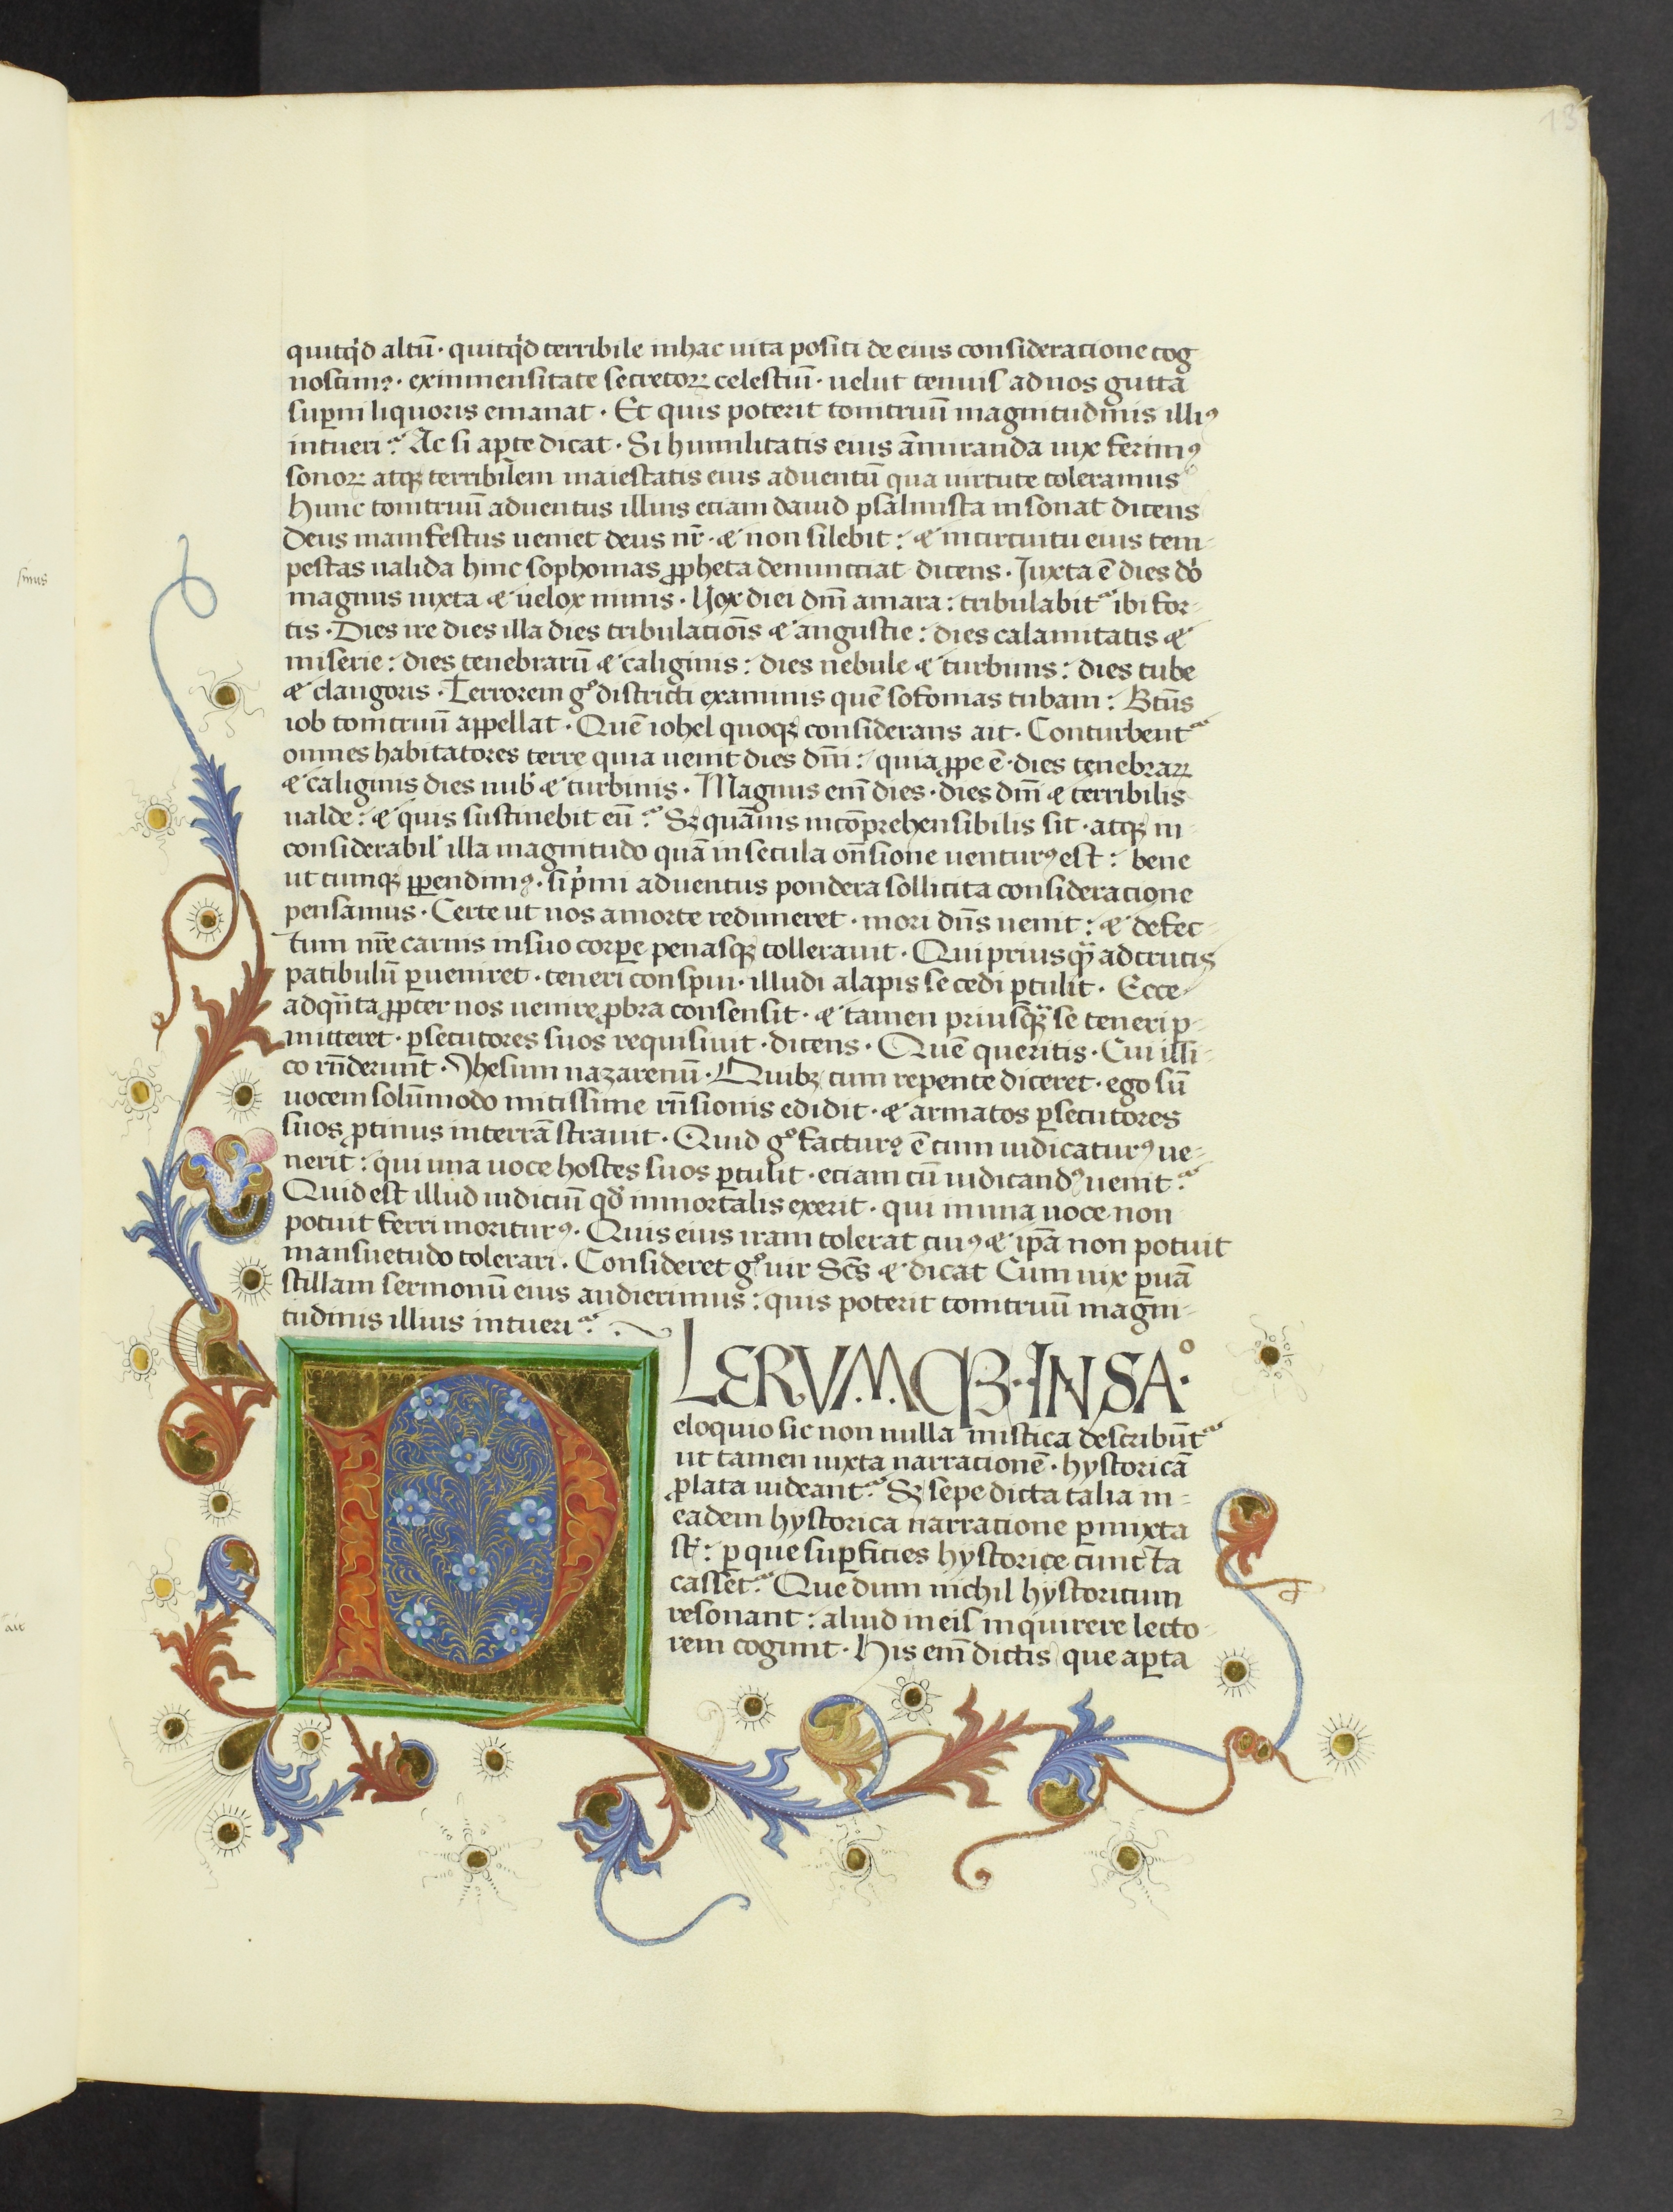 13
quitq'd altū · quitq'd terribile inhac uita positi de eius consideracione cog
noscimꝰ · eximmensitate secretoꝝ celestiū · uelut tenuis adnos gutta
suꝑni liquoris emanat · Et quis poterit tonitruū magnitudinis illiꝰ
intueri? Ac si aꝑte dicat · Si humilitatis eius āmiranda uix ferimꝰ
sonoꝝ atqꝫ terribilem maiestatis eius aduentū qua uirtute toleramus
Hunc tonitruū aduentus illius eciam dauid psalmista insonat dicens
Deus manifestus ueniet deus nr̄ · & non silebit : & incircuitu eius tem-
pestas ualida hinc sophonias ꝓpheta denuncciat dicens · Juxta ē dies dō
magnus iuxta & uelox nimis · Uox diei dn̄i amara : tribulabit᷑ ibi for-
tis · Dies ire dies illa dies tribulacōis & angustie : dies calamitatis &
miserie : dies tenebrarū & caliginis : dies nebule & turbinis : dies tube
& clangoris · Terrorem gͦ districti examinis quē sofonias tubam : Btūs
iob tonitruū appellat · Quē iohel quoqꝫ considerans ait · Conturbent᷑
omnes habitatores terre quia uenit dies dn̄i : quia ꝓpe ē · dies tenebraꝝ
& caliginis dies nub' & turbinis · Magnus eni̅ dies · dies dn̄i & terribilis
ualde : & quis sustinebit eū? Sꝫ quāuis incōprehensibilis sit · atqꝫ in-
considerabil' illa magnitudo quā insecula on̄sione uenturꝰ est : bene
ut cumqꝫ ꝑpendimꝰ · si p'mi aduentus pondera sollicita consideracione
pensamus · Certe ut nos amorte redimeret · mori dn̄s uenit : & defec-
tum nr̄e carnis insuo corꝑe penasqꝫ tollerauit · Qui priusqꝫ adcrucis
patibulū ꝑueniret · teneri conspui · illudi alapis se cedi ꝑtulit · Ecce
adqn̄ta ꝓpter nos uenire ꝓbra consensit · & tamen priusqꝫ se teneri ꝑ-
mitteret · ꝑsecutores suos requisiuit · dicens · Quē queritis · Cui illi-
co rn̄derunt · Jhesum nazarenū · Quibꝫ cum repente diceret · ego sū
uocem solūmodo mitissime rn̄sionis edidit · & armatos ꝑsecutores
suos ꝓtinus interrā strauit · Quid gͦ facturꝰ ē cum iudicaturꝰ ue-
nerit : qui una uoce hostes suos ꝑtulit · eciam cū iudicandꝰ uenit?
Quid est illud iudiciū qd' inmortalis exerit · qui inuna uoce non
potuit ferri moriturꝰ · Quis eius iram tolerat cuiꝰ & ip̄a non potuit
mansuetudo tolerari · Consideret gͦ uir Scs̄ & dicat Cum uix ꝑuā
stillam sermonū eius audierimus : quis poterit tonitruū magni-
tudinis illius intueri?
PLERUMQꝪ · IN SAͦ ·
eloquio sic non nulla mistica describūt᷑
ut tamen iuxta narracionē · hystoricā
ꝓlata uideant᷑ Sꝫ sepe dicta talia in-
eadem hystorica narracione ꝑmixta
st̄ : ꝑ que suꝑficies hystorice cuncta
cassēt᷑ Que dum nichil hystoricum
resonant : aliud ineis inquirere lecto-
rem cogunt · His eni̅ dictis que aꝑta
sinus
ait